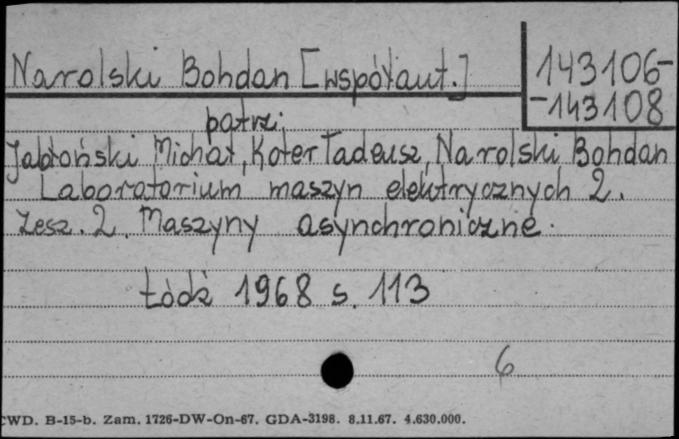 Narolski Bohdan [współaut.]
143106-
-143108
patrz:
Jabłoński Michał, Koter Tadeusz, Narolski Bohdan
Laboratorium maszyn elektrycznych 2.
Zesz. 2. Maszyny asynchroniczne.
Łódź 1968 s. 113
6
CWD. B-15-b. Zam. 1726-DW-On-67. GDA-3198. 8.11.67. 4.630.000.